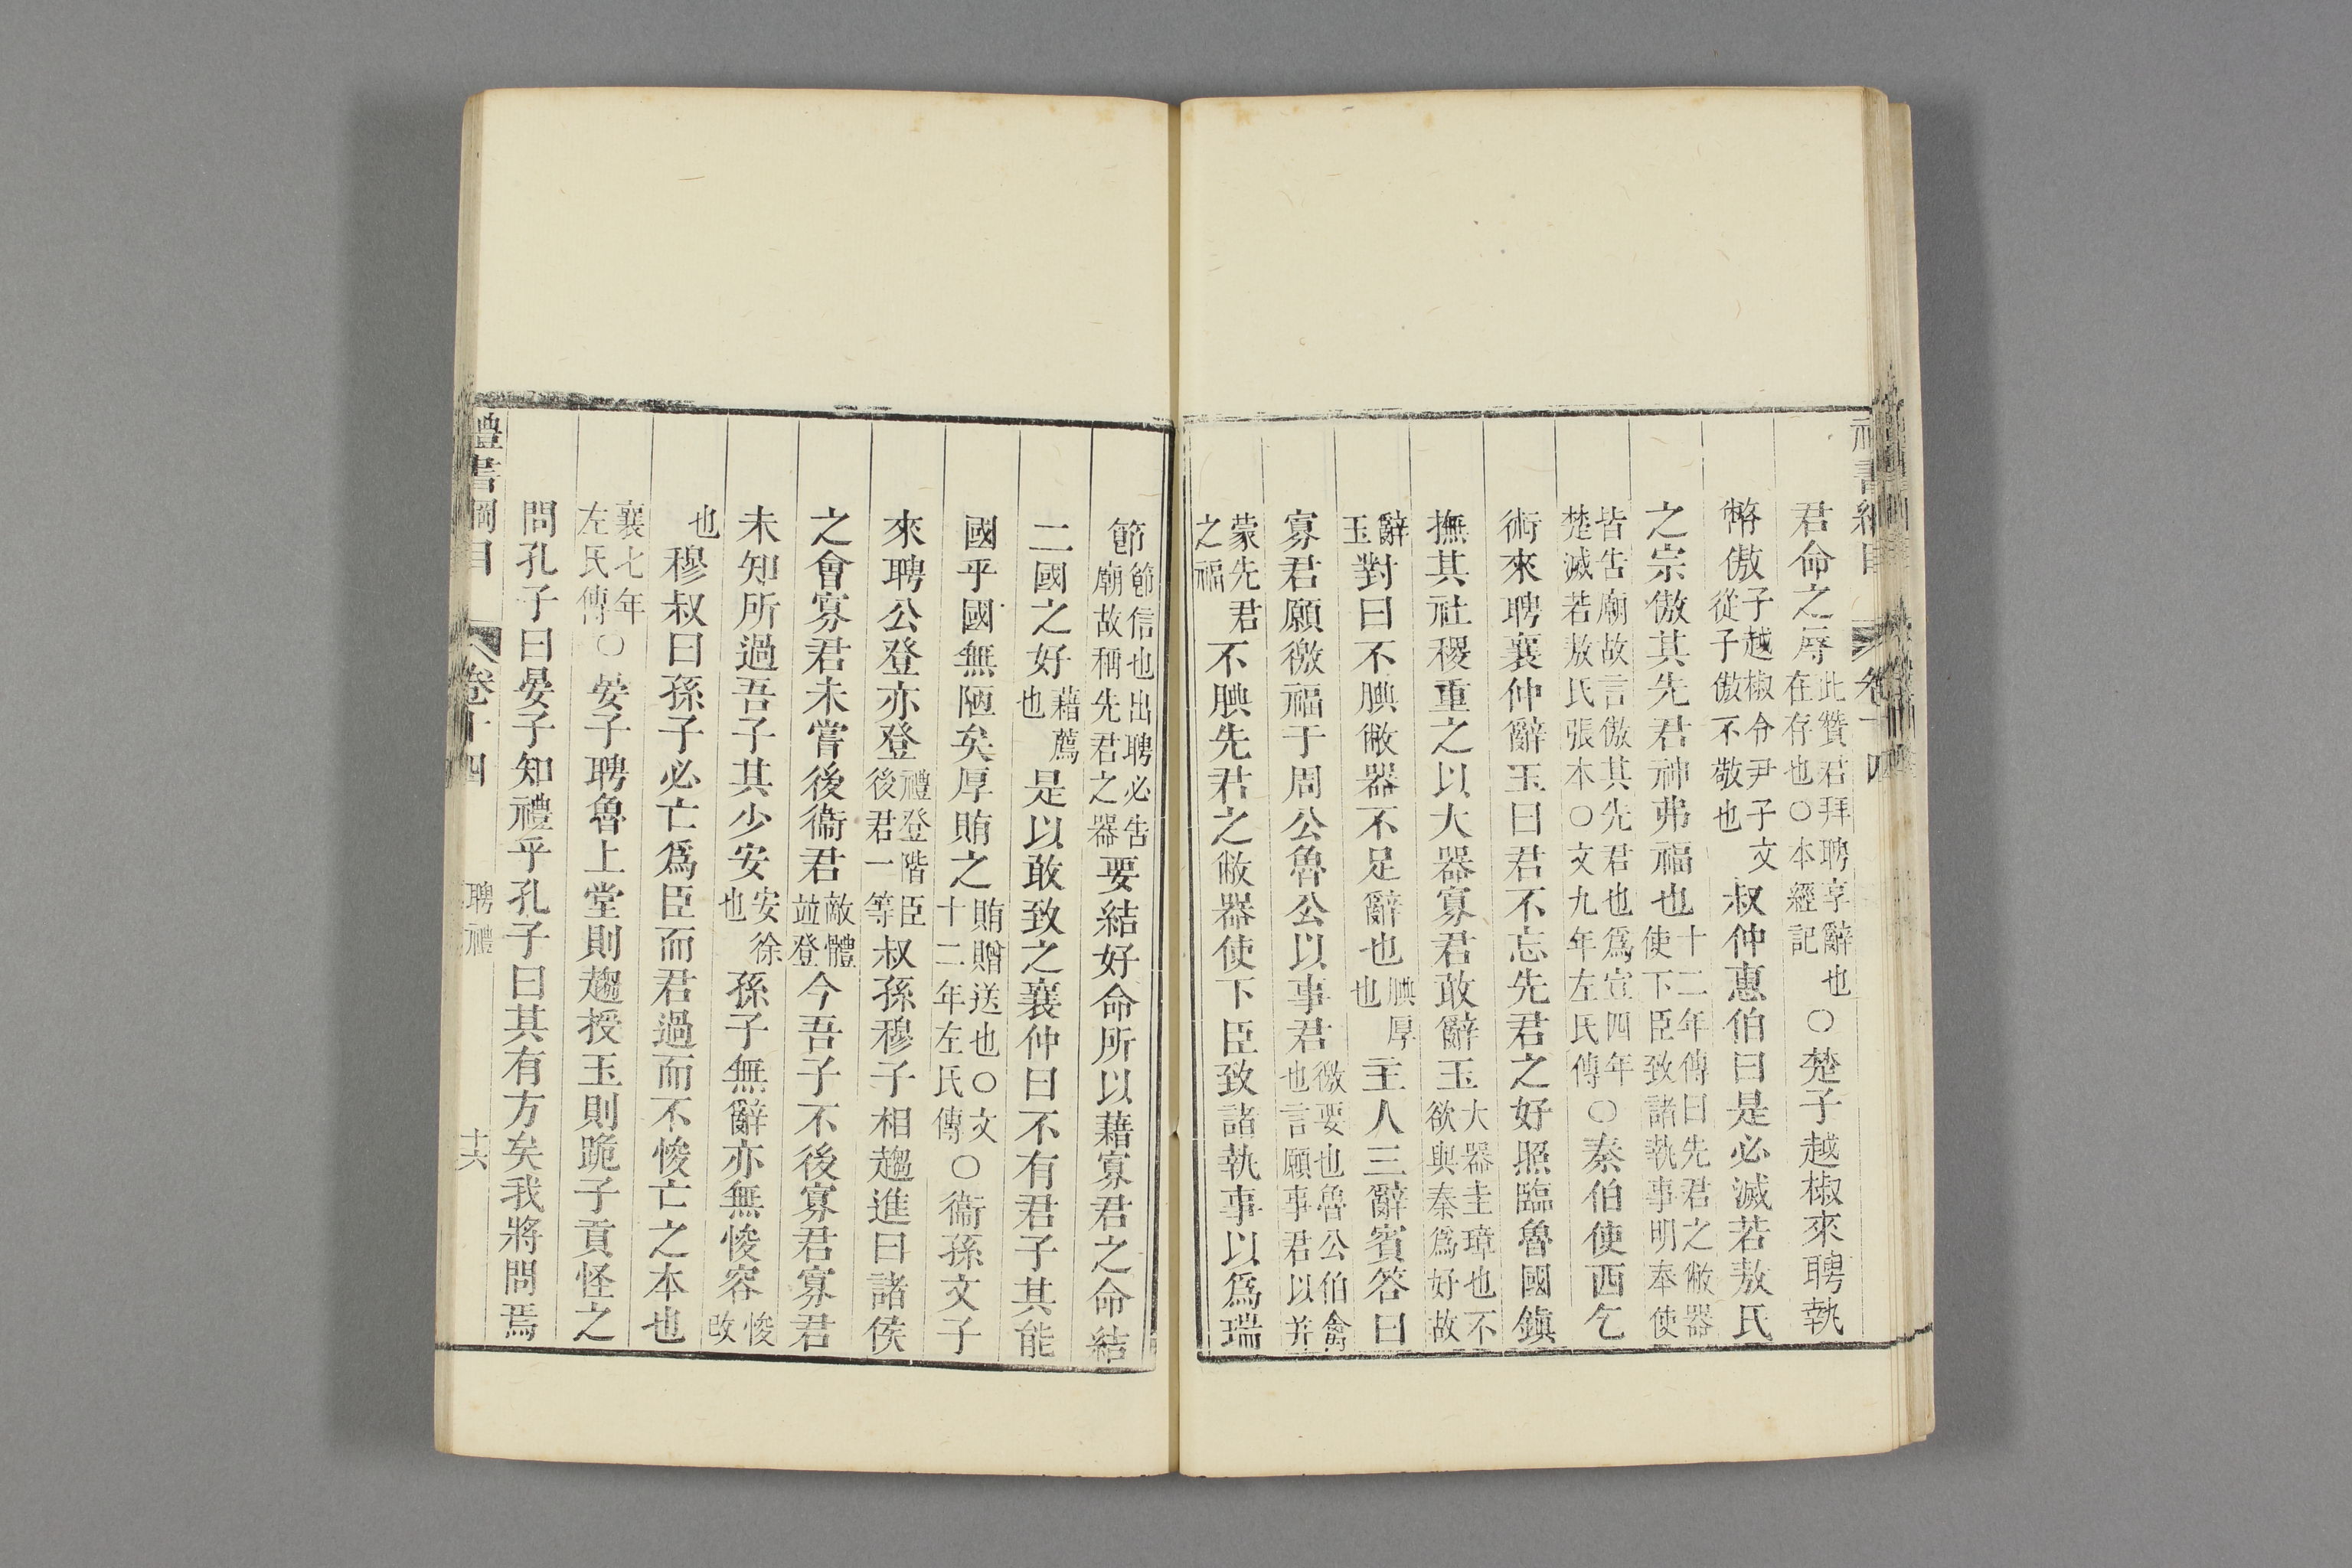 君命之辱此贊君拜聘享辭也在存也○本經記○楚子越椒來聘執
幣傲子越椒令尹子文從子傲不敬也叔仲惠伯曰是必滅若敖氏
之宗傲其先君神弗福也十二年傳曰先君之敝器使下臣致諸執事明奉使
皆告廟故言傲其先君也爲宣四年楚滅若敖氏張本○文九年左氏傳○秦伯使西乞
術來聘襄仲辭玉曰君不忘先君之好照臨魯國鎮
撫其社稷重之以大器寡君敢辭玉大器圭璋也不欲與秦爲好故
辭玉對曰不腆敝器不足辭也腆厚也主人三辭賓答曰
寡君願徼福于周公魯公以事君徼要也魯公伯禽也言願事君以并
蒙先君之福不腆先君之敝器使下臣致諸執事以爲瑞
節節信也出聘必告廟故稱先君之器要結好命所以藉寡君之命結
二國之好藉薦也是以敢致之襄仲曰不有君子其能
國乎國無陋矣厚賄之賄贈送也○文十二年左氏傳○衞孫文子
來聘公登亦登禮登階臣後君一等叔孫穆子相趨進曰諸侯
之會寡君未嘗後衞君敵體並登今吾子不後寡君寡君
未知所過吾子其少安安徐也孫子無辭亦無悛容悛改
也穆叔曰孫子必亡爲臣而君過而不悛亡之本也
襄七年左氏傳○晏子聘魯上堂則趨授玉則跪子貢怪之
問孔子曰晏子知禮乎孔子曰其有方矣我將問焉
禮書綱目 卷十四 聘禮 十六